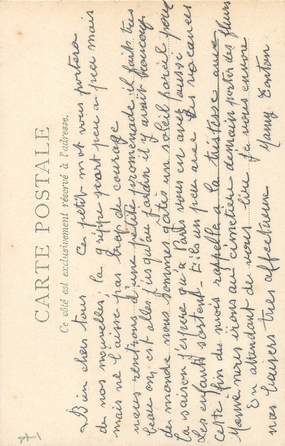 CARTE POSTALE
Ce côté est exclusivement réservé à l'adresse.
Bien chers tous Ce petit mot vous portera
de nos nouvelles, la grippe part peu à peu mais
mais ne laisse pas trop de courage
nous rentrons d'une petite promenade il fait très
beau on est allés jusqu'au jardin il y avait beaucoup
de monde nous sommes gâtés un soleil pareil pour
la saison j'espère qu'à Paris vous en avez aussi
les enfants sortent-ils un peu avec les vacances
cette fin du mois rappelle à la tristesse avec
Mamé nous irons au cimetière demain porter des fleurs
En attendant de vous lire je vous envoie
nos baisers très affectueux Tonton